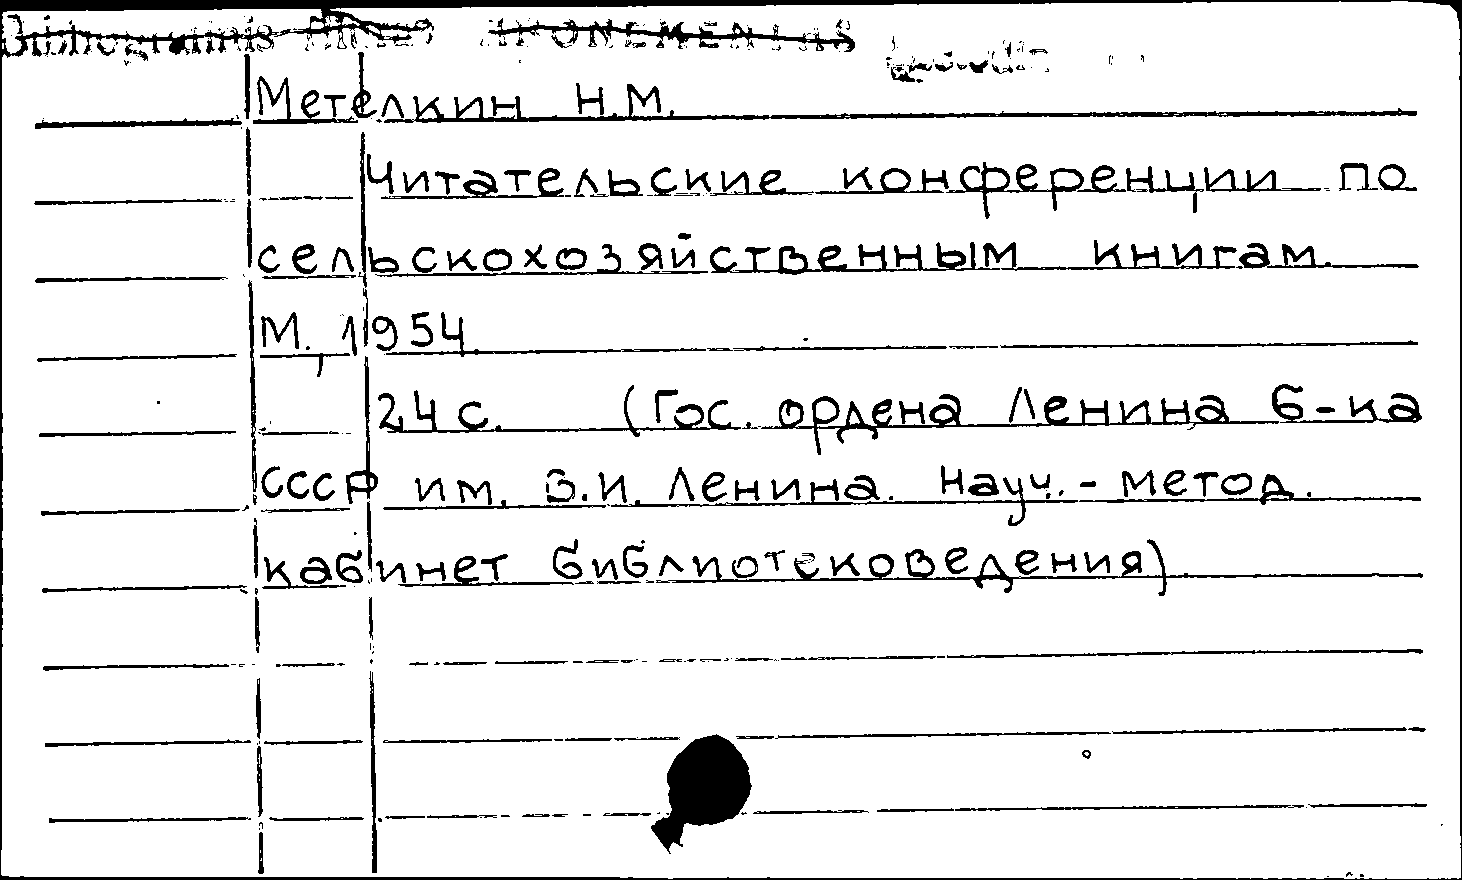 Метелкин Н.М.
Читательские конференции по
сельскохозяйственным книгам.
М., 1954.
24 с. (Гос. ордена Ленина б-ка
СССР им. В.И. Ленина. Науч.- метод.
кабинет библиотековедения).